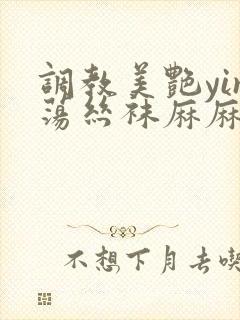 調教美艷yin
蕩絲袜麻麻
不想下月去喫